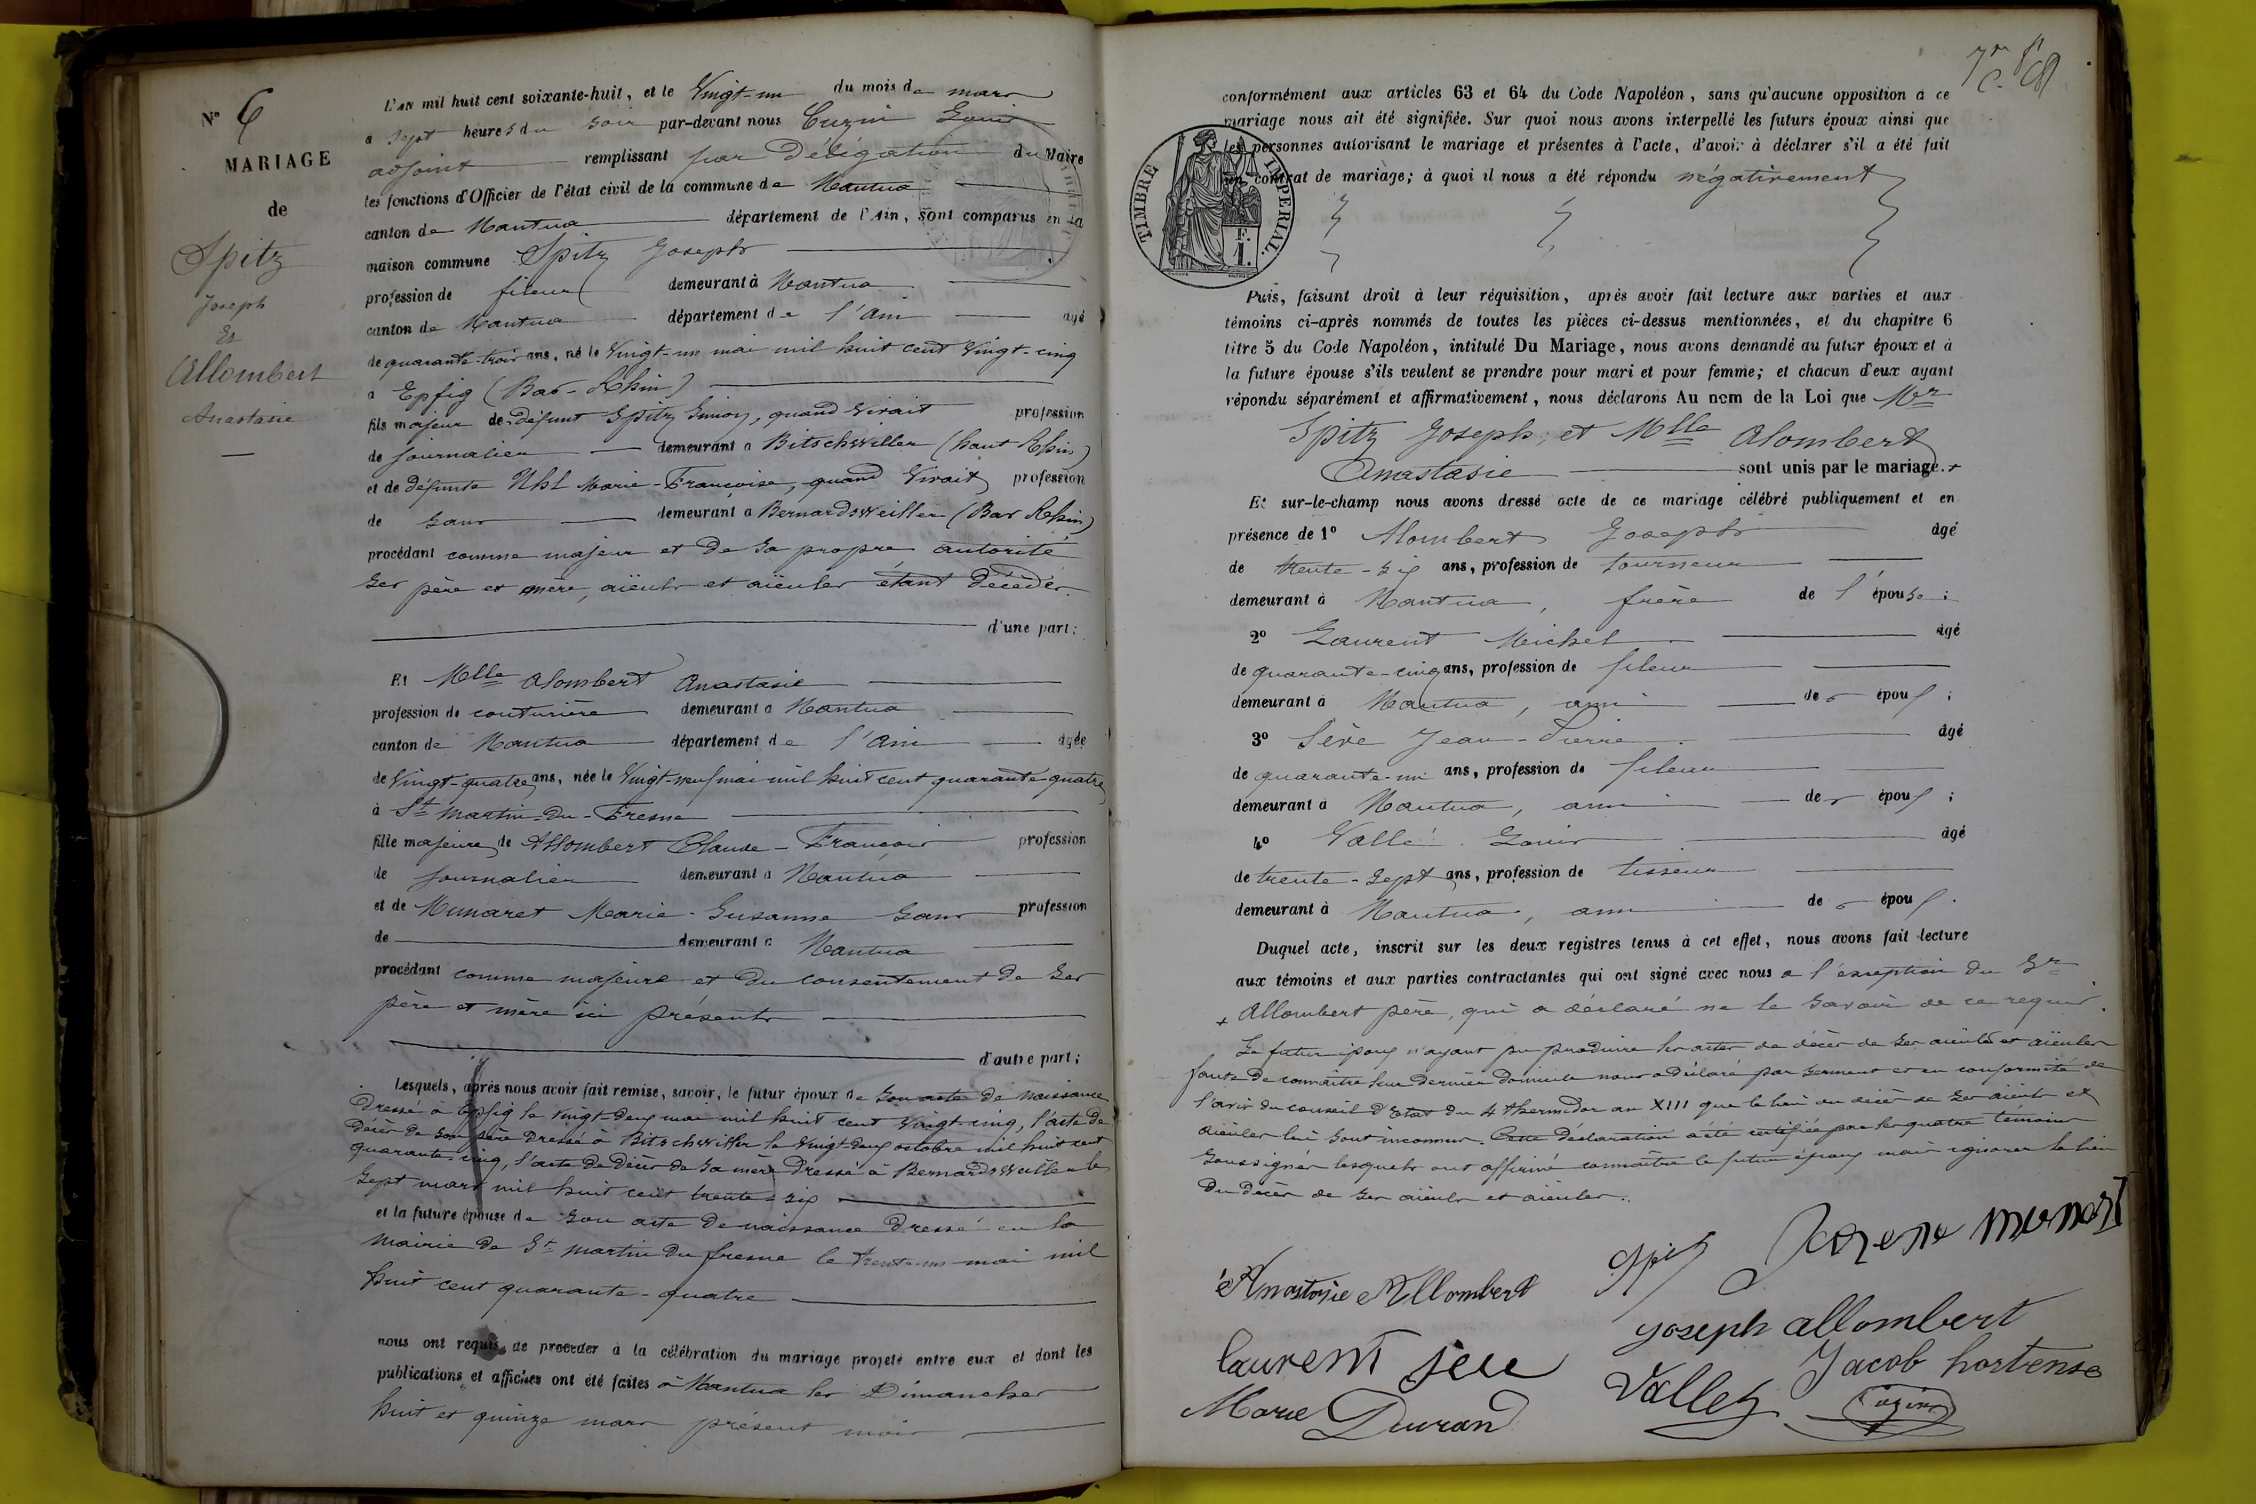 N° 6
MARIAGE
de
Spitz
Joseph
Et
Allombert
Anastasie
L'an mil huit cent soixante-huit, et le Vingt-un du mois de mars
a sept heures du soir par-devant nous Cuzin Louis
adjoint remplissant par Délégation du Maire
les fonctions d'Officier de l'état civil de la commune de Nantua
canton de Nantua département de l'Ain, sont comparus en la
maison commune Spitz Joseph
profession de fileur demeurant à Nantua
canton de Nantua département de l'Ain agé
de quarante-trois ans, né le Vingt-un mai mil huit cent Vingt-cinq
a Epfig (Bas-Rhin)
fils majeur de défunt Spitz Simon, quand Vivait profession
de journalier demeurant a Bitschwiller (haut Rhin)
et de défunte Uhl Marie-Françoise, quand Vivait profession
de sans demeurant a Bernardsweiller (Bas Rhin)
procédant comme majeur et de sa propre autorité
ses père et mère, aïeuls et aïeules étant décédés.
d'une part;
Et Mlle Alombert Anastasie
profession de couturière demeurant a Nantua
canton de Nantua département de l'Ain agée
de Vingt-quatre ans, née le Vingt-neuf mai mil huit cent quarante-quatre
à St Martin-du-Fresne
fille majeure de Allombert Claude-François profession
de journalier demeurant a Nantua
et de Munaret Marie-Susanne sans profession
de demeurant a Nantua
procédant comme majeure et du consentement de ses
père et mère ici présents
d'autre part;
Lesquels, après nous avoir fait remise, savoir, le futur époux de son acte de naissance
dressé à Epfig le vingt-deux mai mil huit cent vingt-cinq, l'acte de
décès de son père dressé à Bitschwiller le vingt-deux octobre mil huit cent
quarante-cinq, l'acte de décès de sa mère dressé à Bernardsweiller le
sept mars mil huit cent trente-six
et la future épouse de son acte de naissance dressé en la
mairie de St Martin du fresne le trente-un mai mil
huit cent quarante-quatre
nous ont requis de procéder à la célébration du mariage projeté entre eux et dont les
publications et affiches ont été faites à Nantua les Dimanches
huit et quinze mars présent mois
conformément aux articles 63 et 64 du Code Napoléon, sans qu'aucune opposition a ce
mariage nous ait été signifiée. Sur quoi nous avons interpellé les futurs époux ainsi que
les personnes autorisant le mariage et présentes à l'acte, d'avoir à déclarer s'il a été fait
un contrat de mariage; à quoi il nous a été répondu négativement
TIMBRE IMPERIAL.
F.
1.
Puis, faisant droit à leur réquisition, après avoir fait lecture aux parties et aux
témoins ci-après nommés de toutes les pièces ci-dessus mentionnées, et du chapitre 6
titre 5 du Code Napoléon, intitulé Du Mariage, nous avons demandé au futur époux et à
la future épouse s'ils veulent se prendre pour mari et pour femme; et chacun d'eux ayant
répondu séparément et affirmativement, nous déclarons Au nom de la Loi que Mr
Spitz Joseph, et Mlle Alombert
Anastasie sont unis par le mariage.
Et sur-le-champ nous avons dressé acte de ce mariage célébré publiquement et en
présence de 1° Alombert Joseph âgé
de trente-six ans, profession de tourneur
demeurant à Nantua, frère de l'épouse;
2° Laurent Michel âgé
de quarante-cinq ans, profession de fileur
demeurant à Nantua, ami de épou;
3° Sève Jean-Pierre âgé
de quarante-un ans, profession de fileur
demeurant à Nantua, ami de épou;
4° Vallé Louis âgé
de trente-sept ans, profession de tisseur
demeurant à Nantua, ami de épou.
Duquel acte, inscrit sur les deux registres tenus à cet effet, nous avons fait lecture
aux témoins et aux parties contractantes qui ont signé avec nous a l'exception du Sr
Allombert père, qui a déclaré ne le savoir de ce requis.
Le futur époux n'ayant pu produire les actes de décès de ses aïeuls et aïeules
faute de connaître leur dernier domicile nous a déclaré par serment et en conformité de
l'avis du conseil d'Etat du 4 thermidor an XIII que le lieu du décès de ses aïeuls et
aïeules lui sont inconnus. Cette déclaration a été certifiée par les quatre témoins
soussignés lesquels ont affirmé connaître le futur époux mais ignorer le lieu
du décès de ses aïeuls et aïeules.
Anastasie Allombert Spitz
joseph allombert
laurent seve Jacob hortense
Marie Durand Vallet Cuzin